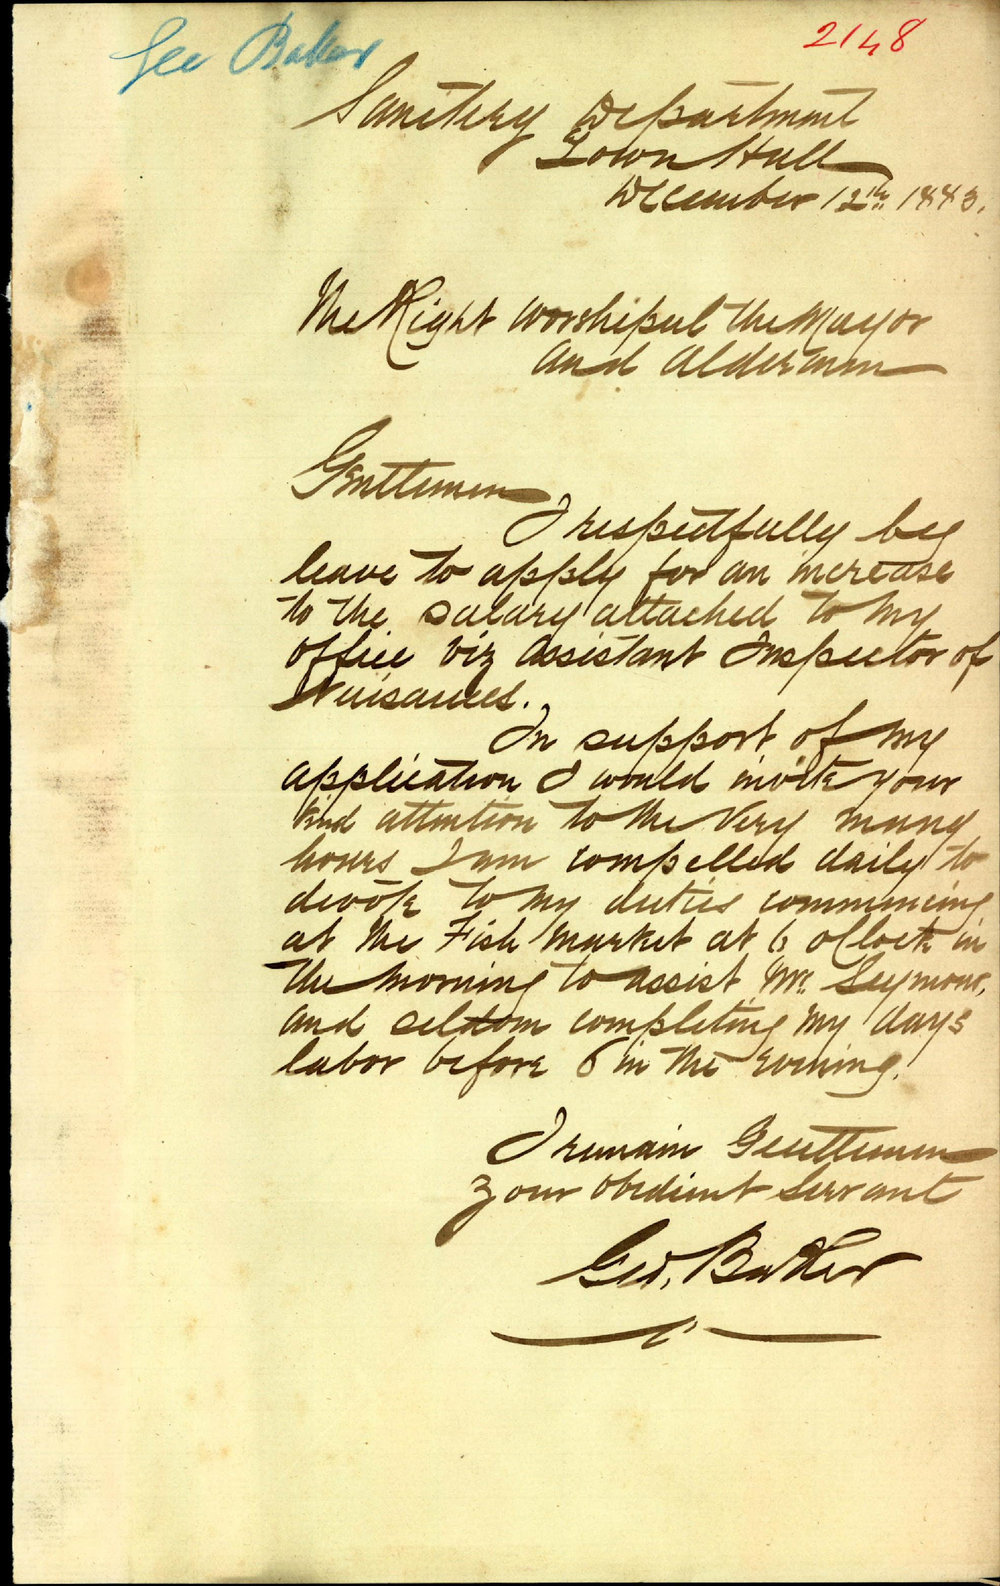 Geo Baker
2148
Sanitery Department
Town Hall
December 12th 1883.
The Right Worshipul the Mayor
and Aldermen
Gentlemen
I respectfully beg
leave to apply for an increase
to the salary attached to my
office viz Assistant Inspector of
Nuisances.
In support of my
application I would invite your
kind attention to the very many
hours I am compelled daily to
devote to my duties commencing
at the Fish Market at 6 oClock in
the morning to assist Mr. Seymour,
and seldom completing my days
labor before 6 in the evening.
I remain Gentlemen
Your obedient Servant
Geo. Baker